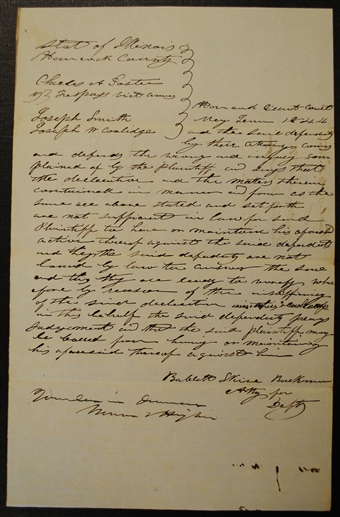 State of Illinois
Hancock County
Charles A Foster
vs Trespass vict armis
Joseph Smith
Joseph W Coolidge
Circuit Court
May Term 1844
and the said defendants
by their Attorneys comes
and defends the wrong and injury
plained of by the Plaintiff and says that
the declaration and the matters therein
contained in manner and form as the
same are above stated and set forth
are not sufficient in law for said
Plaintiff to have or maintain his aforesaid
action thereof against the said defendants
and they the said defendants are not
bound by law to answer the same
and this they are ready to verify where
fore by reason of the insufficiency
of the said declaration
in this behalf the said defendants prays
Judgement and that the said plaintiff may
be barred from having or maintaining
his aforesaid thereof against him
Babbitt Skinner
Atty for
Defts
Joinder in Demurrer